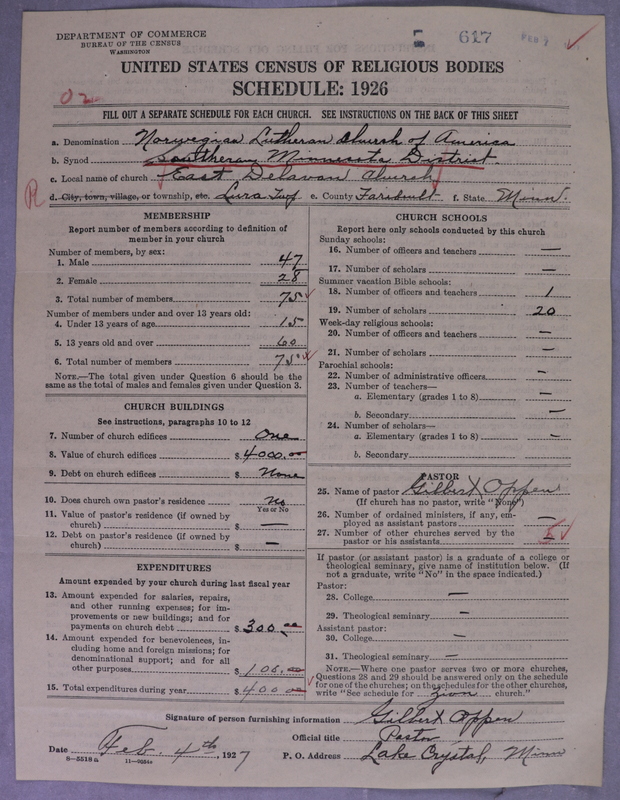 DEPARTMENT OF COMMERCE
BUREAU OF THE CENSUS
WASHINGTON
617
FEB 7
UNITED STATES CENSUS OF RELIGIOUS BODIES
SCHEDULE: 1926
02
FILL OUT A SEPARATE SCHEDULE FOR EACH CHURCH. SEE INSTRUCTIONS ON THE BACK OF THIS SHEET
a. Denomination Norwegian Lutheran Church of America
b. Synod Southern Minnesota District
c. Local name of church East Delavan Church
R d. City, town, village, or township, etc. Lura Twp e. County Faribault f. State Minn.
MEMBERSHIP
Report number of members according to definition of member in your church
Number of members, by sex:
1. Male 47
2. Female 28
3. Total number of members 75
Number of members under and over 13 years old:
4. Under 13 years of age 15
5. 13 years old and over 60
6. Total number of members 75
NOTE.—The total given under Question 6 should be
the same as the total of males and females given under Question 3.
CHURCH BUILDINGS
See instructions, paragraphs 10 to 12
7. Number of church edifices One
8. Value of church edifices $ 4000.00
9. Debt on church edifices $ None
10. Does church own pastor's residence No
Yes or No
11. Value of pastor's residence (if owned by
church) $ —
12. Debt on pastor's residence (if owned by
church) $ —
EXPENDITURES
Amount expended by your church during last fiscal year
13. Amount expended for salaries, repairs,
and other running expenses; for im-
provements or new buildings; and for
payments on church debt $ 300.00
14. Amount expended for benevolences, in-
cluding home and foreign missions; for
denominational support; and for all
other purposes $ 100.00
15. Total expenditures during year $ 400.00
CHURCH SCHOOLS
Report here only schools conducted by this church
Sunday schools:
16. Number of officers and teachers —
17. Number of scholars —
Summer vacation Bible schools:
18. Number of officers and teachers 1
19. Number of scholars 20
Week-day religious schools:
20. Number of officers and teachers —
21. Number of scholars —
Parochial schools:
22. Number of administrative officers —
23. Number of teachers—
a. Elementary (grades 1 to 8) —
b. Secondary —
24. Number of scholars—
a. Elementary (grades 1 to 8) —
b. Secondary —
PASTOR
25. Name of pastor Gilbert Oppen
(If church has no pastor, write "None")
26. Number of ordained ministers, if any, em-
ployed as assistant pastors —
27. Number of other churches served by the
pastor or his assistants 5
If pastor (or assistant pastor) is a graduate of a college or
theological seminary, give name of institution below. (If
not a graduate, write "No" in the space indicated.)
Pastor:
28. College —
29. Theological seminary —
Assistant pastor:
30. College —
31. Theological seminary —
NOTE.—Where one pastor serves two or more churches,
Questions 28 and 29 should be answered only on the schedule
for one of the churches; on the schedules for the other churches,
write "See schedule for Zion church."
Signature of person furnishing information Gilbert Oppen
Official title Pastor
Date Feb. 4th, 1927 P. O. Address Lake Crystal, Minn
8—5518a 11—9684